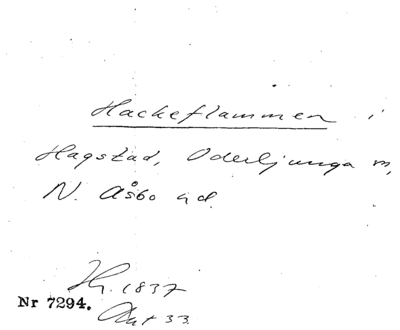 Hackeflammen i
Hagstad, Oderljunga m,
N. Åsbo hd.
Hr. 1837
Nr 7294.
Akt 33.